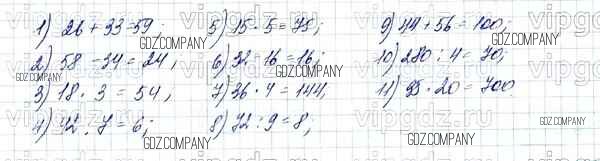 1) 26 + 33 = 59
2) 58 - 34 = 24;
3) 18 · 3 = 54;
4) 42 : 7 = 6;
5) 15 · 5 = 75;
6) 32 - 16 = 16;
7) 36 · 4 = 144;
8) 72 : 9 = 8;
9) 44 + 56 = 100;
10) 280 : 4 = 70;
11) 35 · 20 = 700.
GDZ.COMPANY
GDZ.COMPANY
GDZ.COMPANY
GDZ.COMPANY
GDZ.COMPANY
GDZ.COMPANY
GDZ.COMPANY
GDZ.COMPANY
GDZ.COMPANY